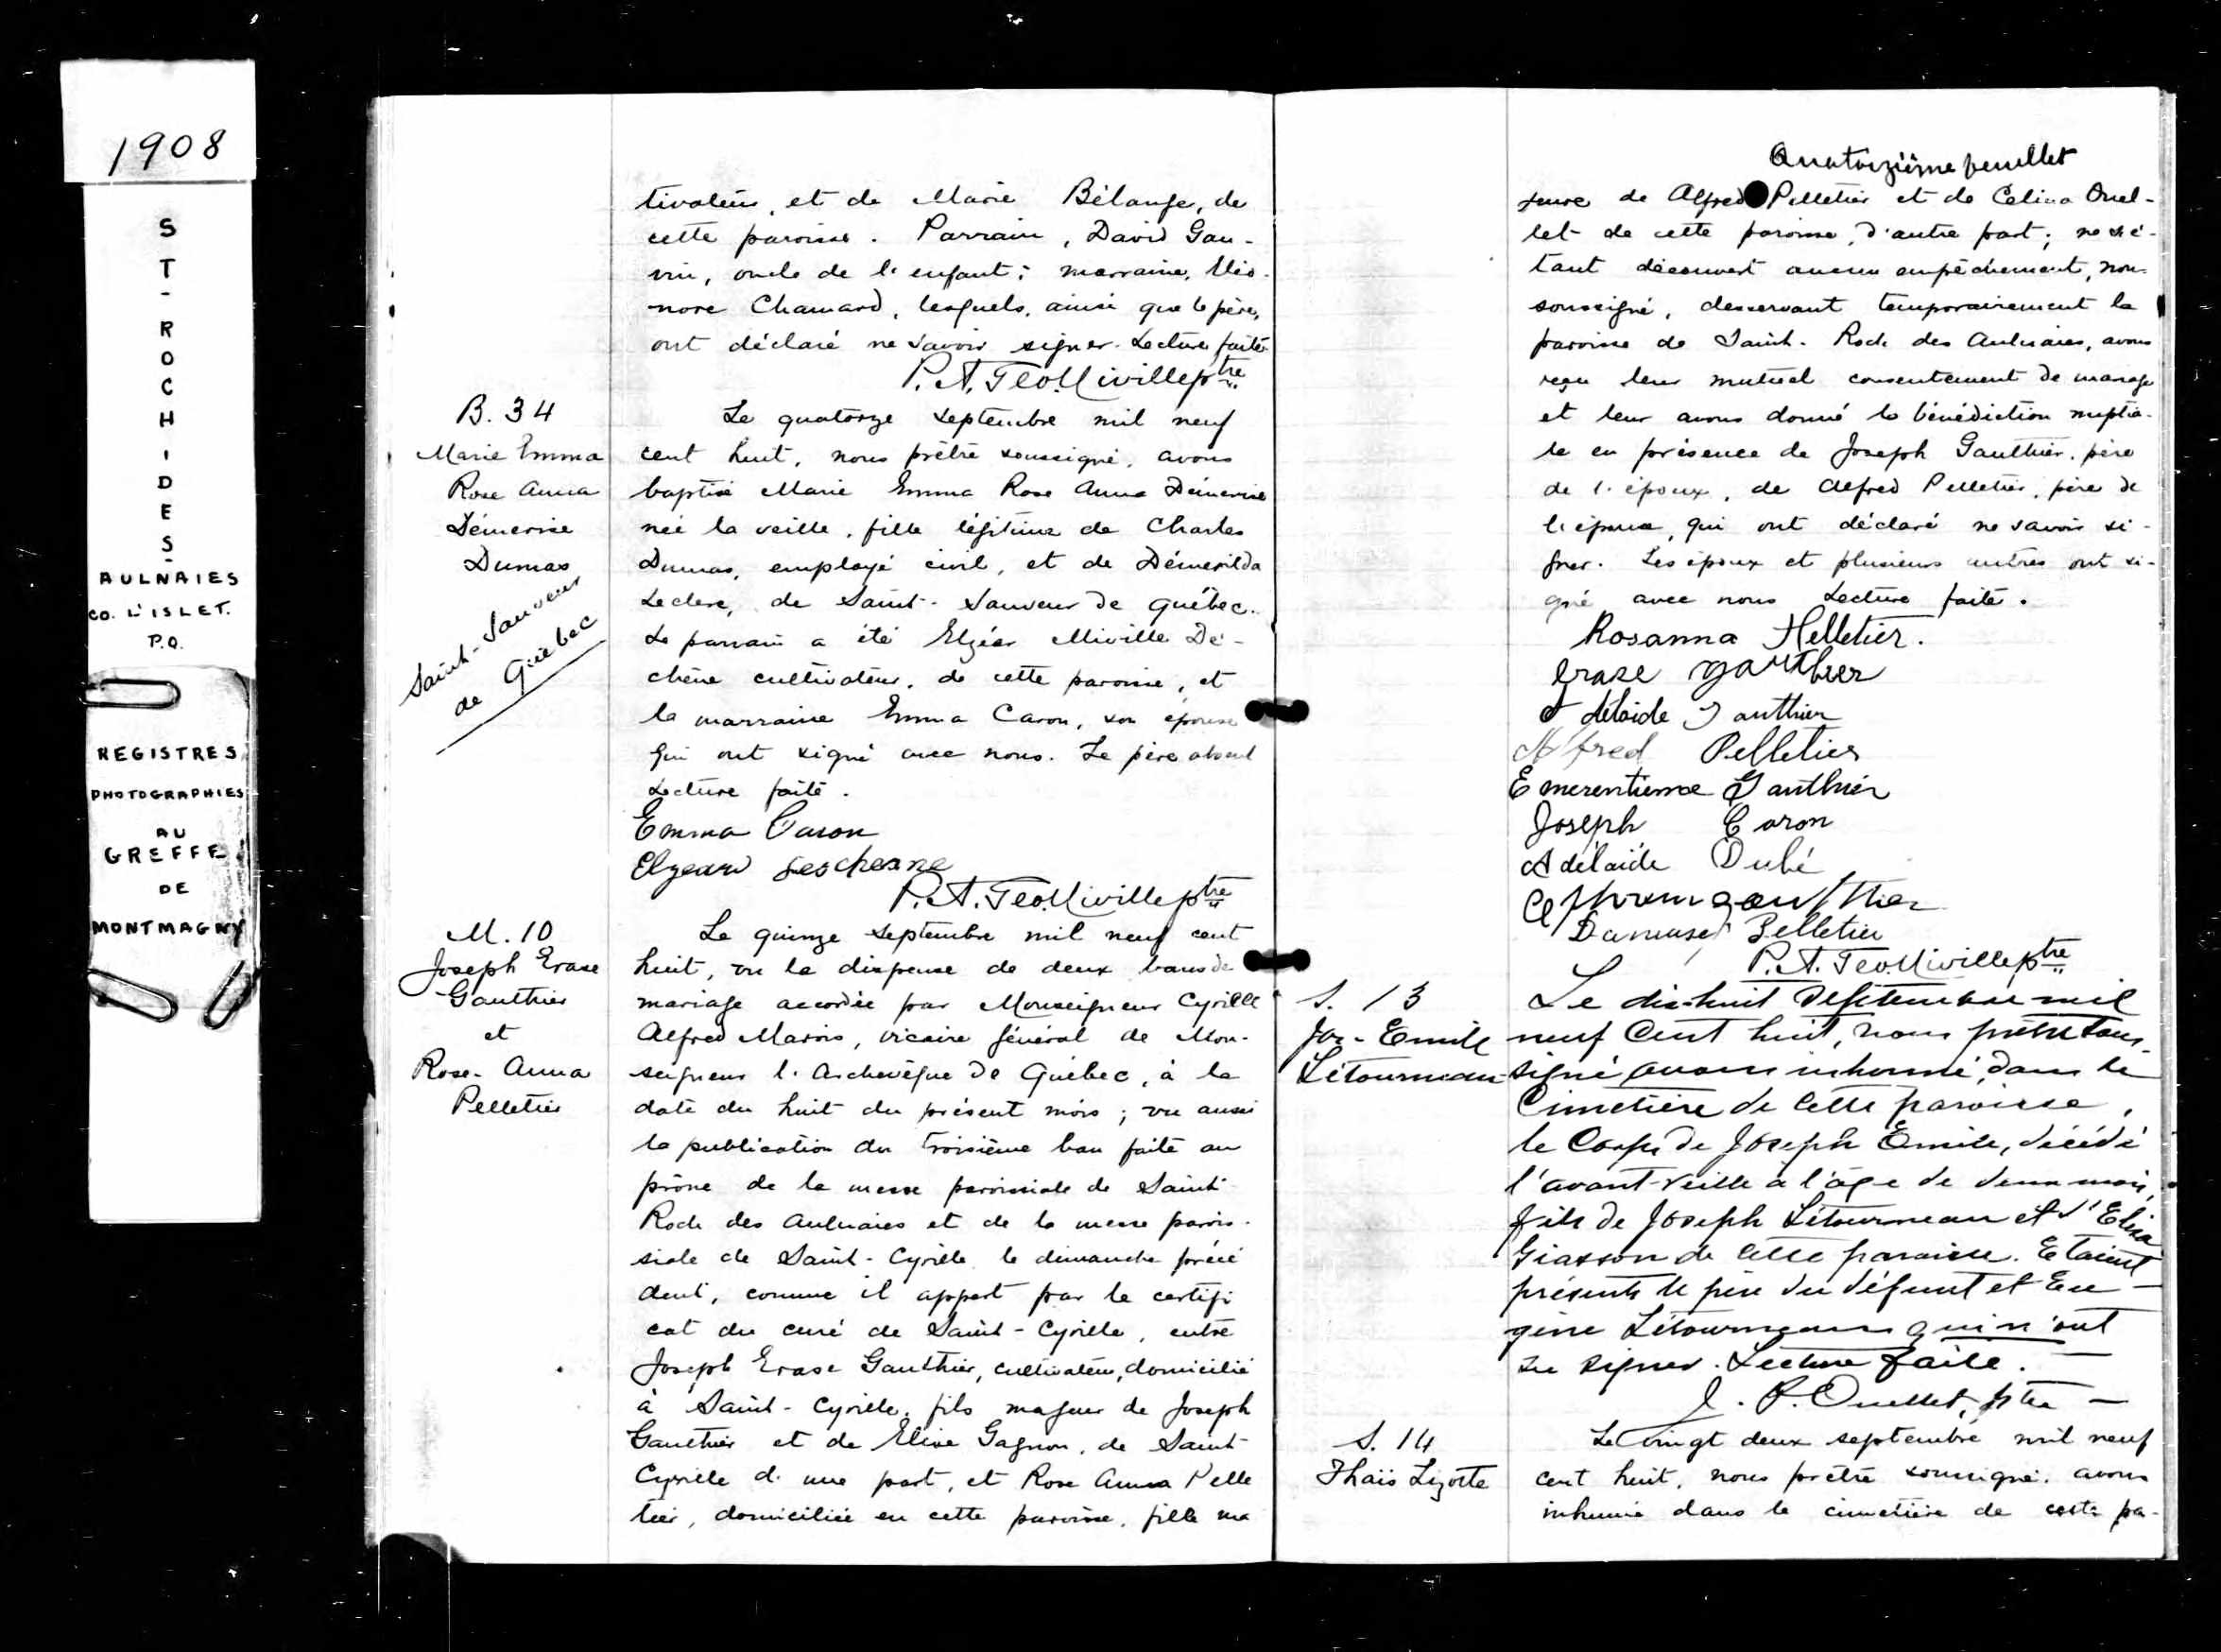 1908
S
T
-
R
O
C
H
-
D
E
S
-
AULNAIES
CO. L'ISLET.
P.Q.
REGISTRES
PHOTOGRAPHIES
AU
GREFFE
DE
MONTMAGNY
tivateur, et de Marie Bélange, de
cette paroisse. Parrain, David Gau-
vin, oncle de l'enfant; marraine, Eléo-
nore Chamard, lesquels, ainsi que le père,
ont déclaré ne savoir signer. Lecture faite
P.A. Téo. Miville ptre
B. 34
Marie Emma
Rose Anna
Démerise
Dumas
Saint-Sauveur
de Québec
Le quatorze septembre mil neuf
cent huit, nous prêtre soussigné, avons
baptisé Marie Emma Rose Anna Démerise
née la veille, fille légitime de Charles
Dumas, employé civil, et de Démerilda
Leclerc, de Saint-Sauveur de Québec.
Le parrain a été Elzéar Miville De-
chêne cultivateur, de cette paroisse, et
la marraine Emma Caron, son épouse
qui ont signé avec nous. Le père absent
Lecture faite.
Emma Caron
Elzeard Deschesne
P.A. Téo. Miville ptre
M. 10
Joseph Erase
Gauthier
et
Rose-Anna
Pelletier
Le quinze septembre mil neuf cent
huit, vu la dispense de deux bans de
mariage accordée par Monseigneur Cyrille
Alfred Marois, vicaire général de Mon-
seigneur l'Archevêque de Québec, à la
date du huit du présent mois; vu aussi
la publication du troisième ban faite au
prône de la messe paroissiale de Saint
Roch des Aulnaies et de la messe parois-
siale de Saint-Cyrille le dimanche précé
dent, comme il appert par le certifi
cat du curé de Saint-Cyrille, entre
Joseph Erase Gauthier, cultivateur, domicilié
à Saint-Cyrille, fils majeur de Joseph
Gauthier et de Elise Gagnon, de Saint
Cyrille d'une part, et Rose Anna Pelle
tier, domiciliée en cette paroisse, fille ma
Quatorzième feuillet
jeure de Alfred Pelletier et de Celina Ouel-
let de cette paroisse, d'autre part; ne s'é-
tant découvert aucun empêchement, nous
soussigné, desservant temporairement la
paroisse de Saint-Roch des Aulnaies, avons
reçu leur mutuel consentement de mariage
et leur avons donné la bénédiction nuptia-
le en présence de Joseph Gauthier, père
de l'époux, de Alfred Pelletier, père de
l'épouse, qui ont déclaré ne savoir si-
gner. Les époux et plusieurs autres ont si-
gné avec nous Lecture faite.
Rosanna Pelletier.
Erase Gauthier
Adélaide Gauthier
Alfred Pelletier
Emerentienne Gauthier
Joseph Caron
Adélaïde Dubé
Gauthier
Damase Pelletier
P.A. Téo. Miville ptre
S. 13
Jos-Emile
Létourneau
Le dix-huit septembre mil
neuf cent huit, nous prêtre sous-
signé avons inhumé, dans le
Cimetière de cette paroisse,
le corps de Joseph Emile, décédé
l'avant-veille à l'âge de deux mois,
fils de Joseph Létourneau et d'Elisa
Giasson de cette paroisse. Etaient
présents le père du défunt et Eu-
gène Létourneau qui n'ont
su signer. Lecture faite.
J. P. Ouellet, ptre
S. 14
Thaïs Lizotte
Le vingt deux septembre mil neuf
cent huit, nous prêtre soussigné, avons
inhumé dans le cimetière de cette pa-